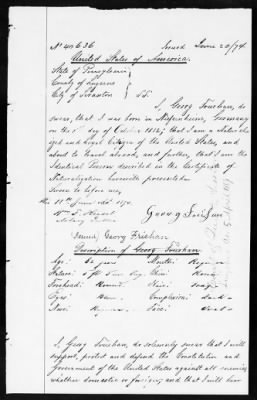 Issued June 20/74.
United States of America.
State of Pennsylvania
County of Luzerne
City of Scranton } S.S.
I, Georg Friehan, do
swear, that I was born in Germany
on the day of October 1812; that I am a Natural-
ized and loyal Citizen of the United States, and
about to travel abroad, and further, that I am the
Identical Person described in the Certificate of
Naturalization herewith presented.
Sworn to before me,
this 11th June 1874.
Notary Public
Georg
Georg Friehan
Description of Georg Friehan
Age: 62 years Mouth: Regular
Stature: 5 ft Eng. Chin: Round
Forehead: Round Hair:
Eyes: Complexion: dark
Nose: Regular Face:
I, Georg Friehan, do solemnly swear that I will
support, protect and defend the Constitution and
Government of the United States against all enemies,
whether domestic or foreign; and that I will bear